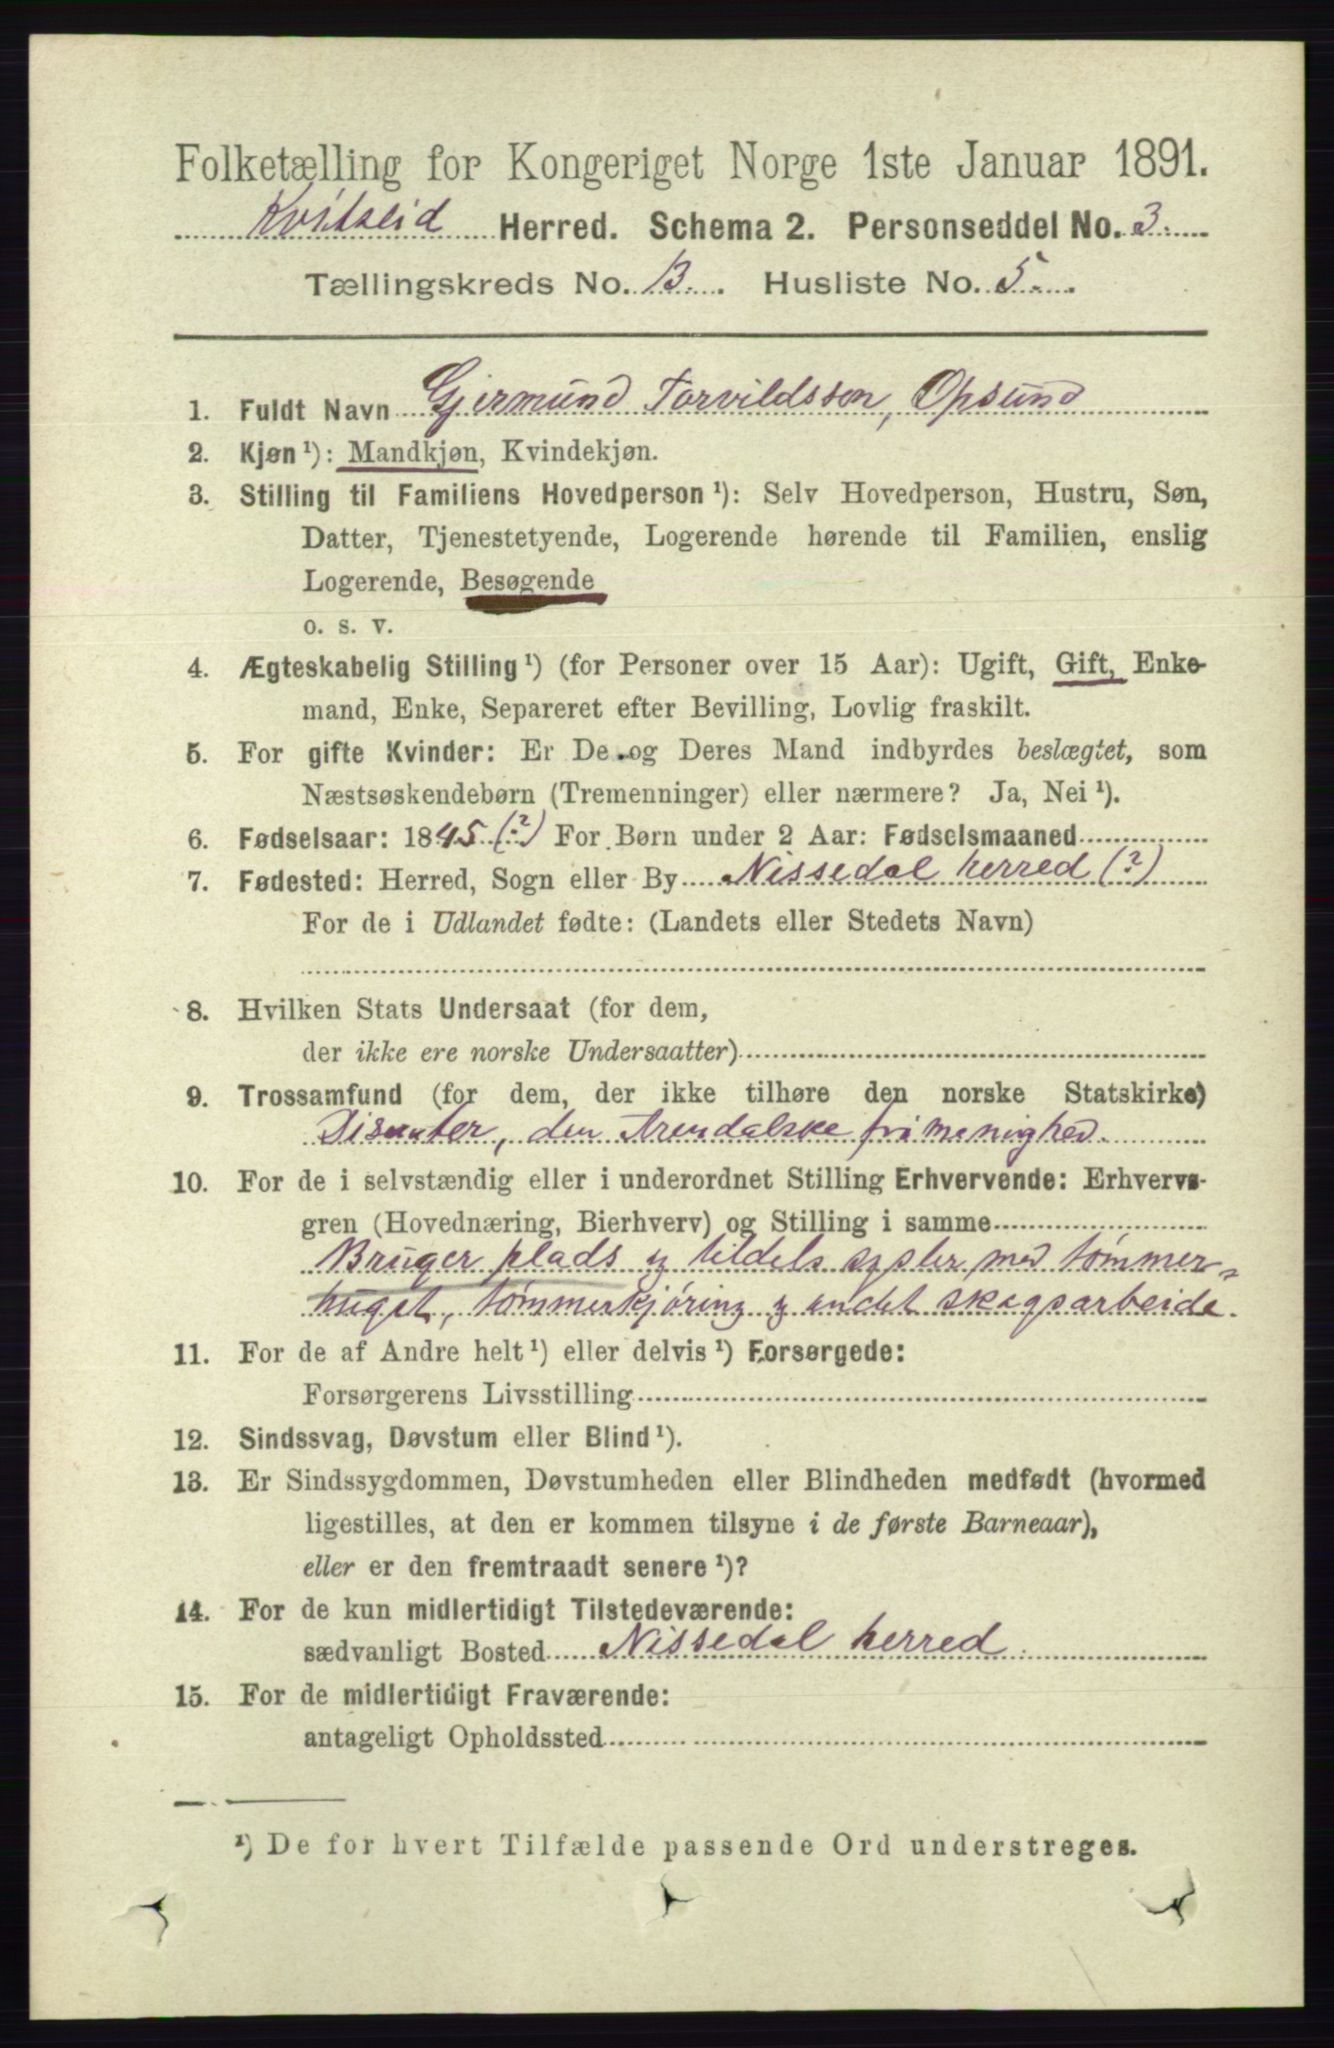 Folketælling for Kongeriget Norge 1ste Januar 1891.
Kvitseid Herred. Schema 2. Personseddel No. 3.
Tællingskreds No. 13. Husliste No. 5.
1. Fuldt Navn Gjermund Torvildsson, Opsund
2. Kjøn ¹): Mandkjøn, Kvindekjøn.
3. Stilling til Familiens Hovedperson ¹): Selv Hovedperson, Hustru, Søn,
Datter, Tjenestetyende, Logerende hørende til Familien, enslig
Logerende, Besøgende
o. s. v.
4. Ægteskabelig Stilling ¹) (for Personer over 15 Aar): Ugift, Gift, Enke-
mand, Enke, Separeret efter Bevilling, Lovlig fraskilt.
5. For gifte Kvinder: Er De og Deres Mand indbyrdes beslægtet, som
Næstsøskendebørn (Tremenninger) eller nærmere? Ja, Nei ¹).
6. Fødselsaar: 1845 (?) For Børn under 2 Aar: Fødselsmaaned
7. Fødested: Herred, Sogn eller By Nissedal herred (?)
For de i Udlandet fødte: (Landets eller Stedets Navn)
8. Hvilken Stats Undersaat (for dem,
der ikke ere norske Undersaatter)
9. Trossamfund (for dem, der ikke tilhøre den norske Statskirke)
Disenter, den Arendalske frimenighed.
10. For de i selvstændig eller i underordnet Stilling Erhvervende: Erhvervs-
gren (Hovednæring, Bierhverv) og Stilling i samme
Bruger plads og tildels sysler med tømmer-
huget, tømmerkjøring og andet skogsarbeide.
11. For de af Andre helt ¹) eller delvis ¹) Forsørgede:
Forsørgerens Livsstilling
12. Sindssvag, Døvstum eller Blind ¹).
13. Er Sindssygdommen, Døvstumheden eller Blindheden medfødt (hvormed
ligestilles, at den er kommen tilsyne i de første Barneaar),
eller er den fremtraadt senere ¹)?
14. For de kun midlertidigt Tilstedeværende:
sædvanligt Bosted Nissedal herred.
15. For de midlertidigt Fraværende:
antageligt Opholdssted
¹) De for hvert Tilfælde passende Ord understreges.